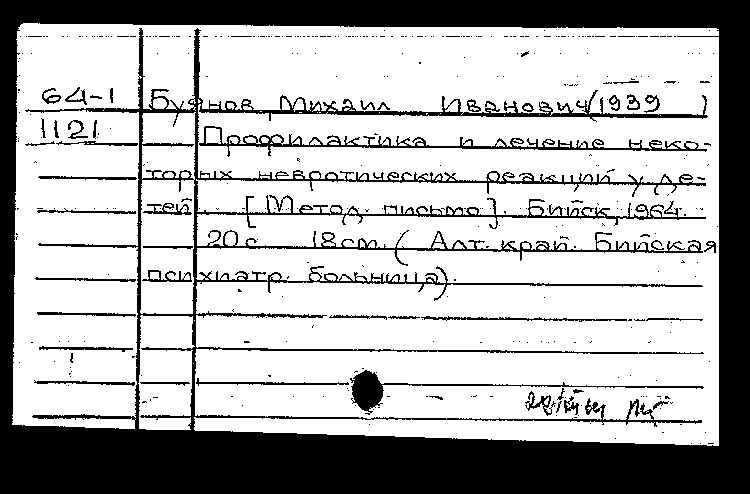 64-1 Буянов, Михаил Иванович (1939 )
1121 Профилактика и лечение неко-
торых невротических реакций у де-
тей. [Метод. письмо]. Бийск, 1964.
20 с. 18 см. (Алт. край. Бийская
психиатр. больница).